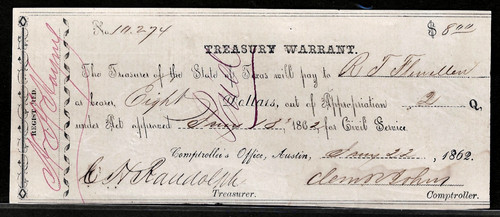 No. 10.274 $ 8.00
TREASURY WARRANT.
The Treasurer of the State of Texas will pay to R T
or bearer, Eight Dollars, out of Appropriation 2 Q,
under Act approved 1862 for Civil Service.
Comptroller's Office, Austin, 22, 1862.
C H Randolph
Treasurer. Comptroller.
REGISTERED.
Paid